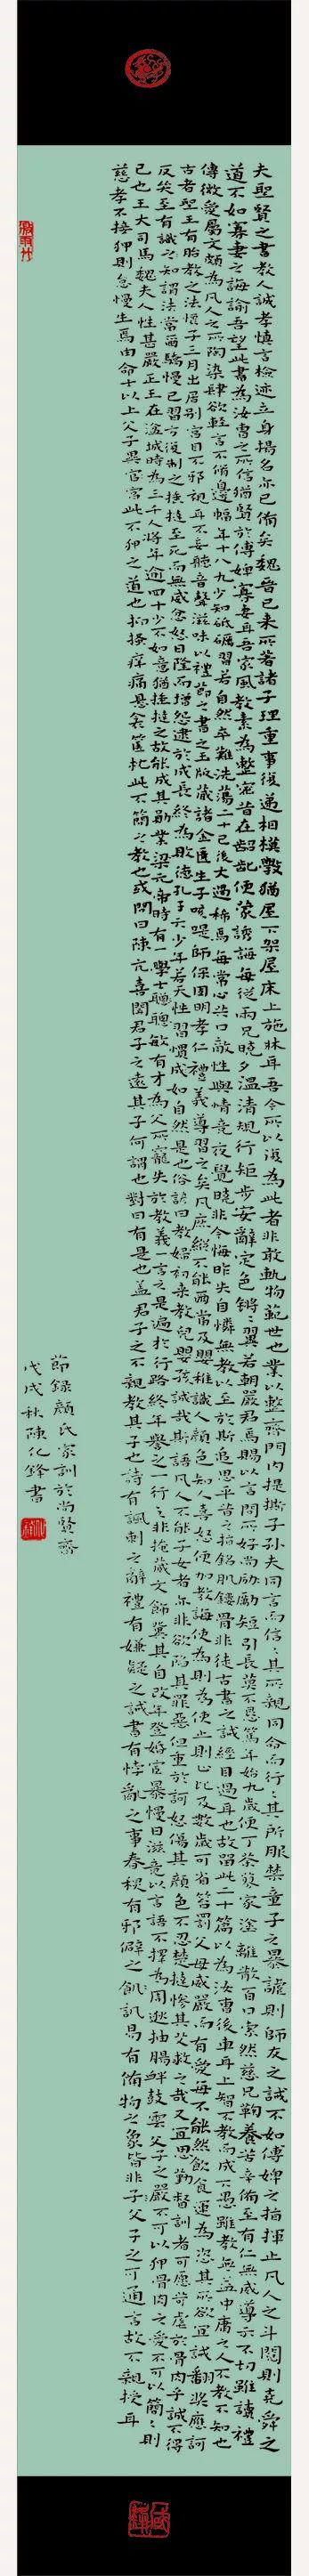 夫聖賢之書教人誠孝慎言檢迹立身揚名亦已備矣魏晉已來所著諸子理重事複遞相模斅猶屋下架屋床上施牀耳吾今所以復為此者非敢軌物範世也業以整齊門內提撕子孫夫同言而信〻其所親同命而行〻其所服禁童子之暴謔則師友之誡不如傅婢之指揮止凡人之斗鬩則堯舜之
道不如寡妻之誨諭吾望此書為汝曹之所信猶賢於傅婢寡妻耳吾家風教素為整密昔在齠齔便蒙誘誨每從兩兄曉夕溫凊規行矩步安辭定色鏘〻翼〻若朝嚴君焉賜以言問所好尚勵短引長莫不懇篤年始九歲便丁荼蓼家塗離散百口索然慈兄鞠養苦辛備至有仁無威導示不切雖讀禮
傳微愛屬文頗為凡人之所陶染肆欲輕言不備邊幅年十八九少知砥礪習若自然卒難洗蕩二十已後大過稀焉每常心共口敵性與情競夜覺曉非今悔昨失自憐無教以至於斯追思平昔之指銘肌鏤骨非徒古書之誡經目過耳也故留此二十篇以為汝曹後車耳上智不教而成下愚雖教無益中庸之人不教不知也
古者聖王有胎教之法懷子三月出居別宮目不邪視耳不妄聽音聲滋味以禮節之書之玉版藏諸金匱生子咳提師保固明孝仁禮義導習之矣凡庶縱不能爾當及嬰稚識人顏色知人喜怒便加教誨使為則為使止則止比及數歲可省笞罰父母威嚴而有愛每不能然飲食運為恣其所欲宜誡翻獎應訶
反笑至有識之知謂法當爾驕慢已習方復制之捶撻至死而無威忿怒日隆而增怨逮於成長終為敗德孔子云少年若天性習慣成如自然是也俗諺曰教婦初來教兒嬰孩誠哉斯語凡人不能子女者亦非欲陷其罪惡但重於訶怒傷其顏色不忍楚撻慘其父救之哉又宜思勤督訓者可願苛虐於骨肉乎誠不得
已也王大司馬魏夫人性甚嚴正王在湓城時為三千人將年逾四十少不如意猶捶撻之故能成其勛業梁元帝時有一學士聰聰敏有才為父所寵失於教義一言之是遍於行路終年譽之一行之非掩藏文飾冀其自改年登婚宦暴慢日滋竟以言語不擇為周逖抽腸釁鼓雲父子之嚴不可以狎骨肉之愛不可以簡〻則
慈孝不接狎則怠慢生焉由命士以上父子異宮此不狎之道也抑搔痒痛懸衾篋枕此不簡之教也或問曰陳亢喜聞君子之遠其子何謂也對曰有是也蓋君子之不親教其子也詩有諷刺之辭禮有嫌疑之誡書有悖亂之事春秋有邪僻之譏易有備物之象皆非子父子之可通言故不親授耳
節錄顏氏家訓於尚賢齋
戊戌秋陳化鋒書